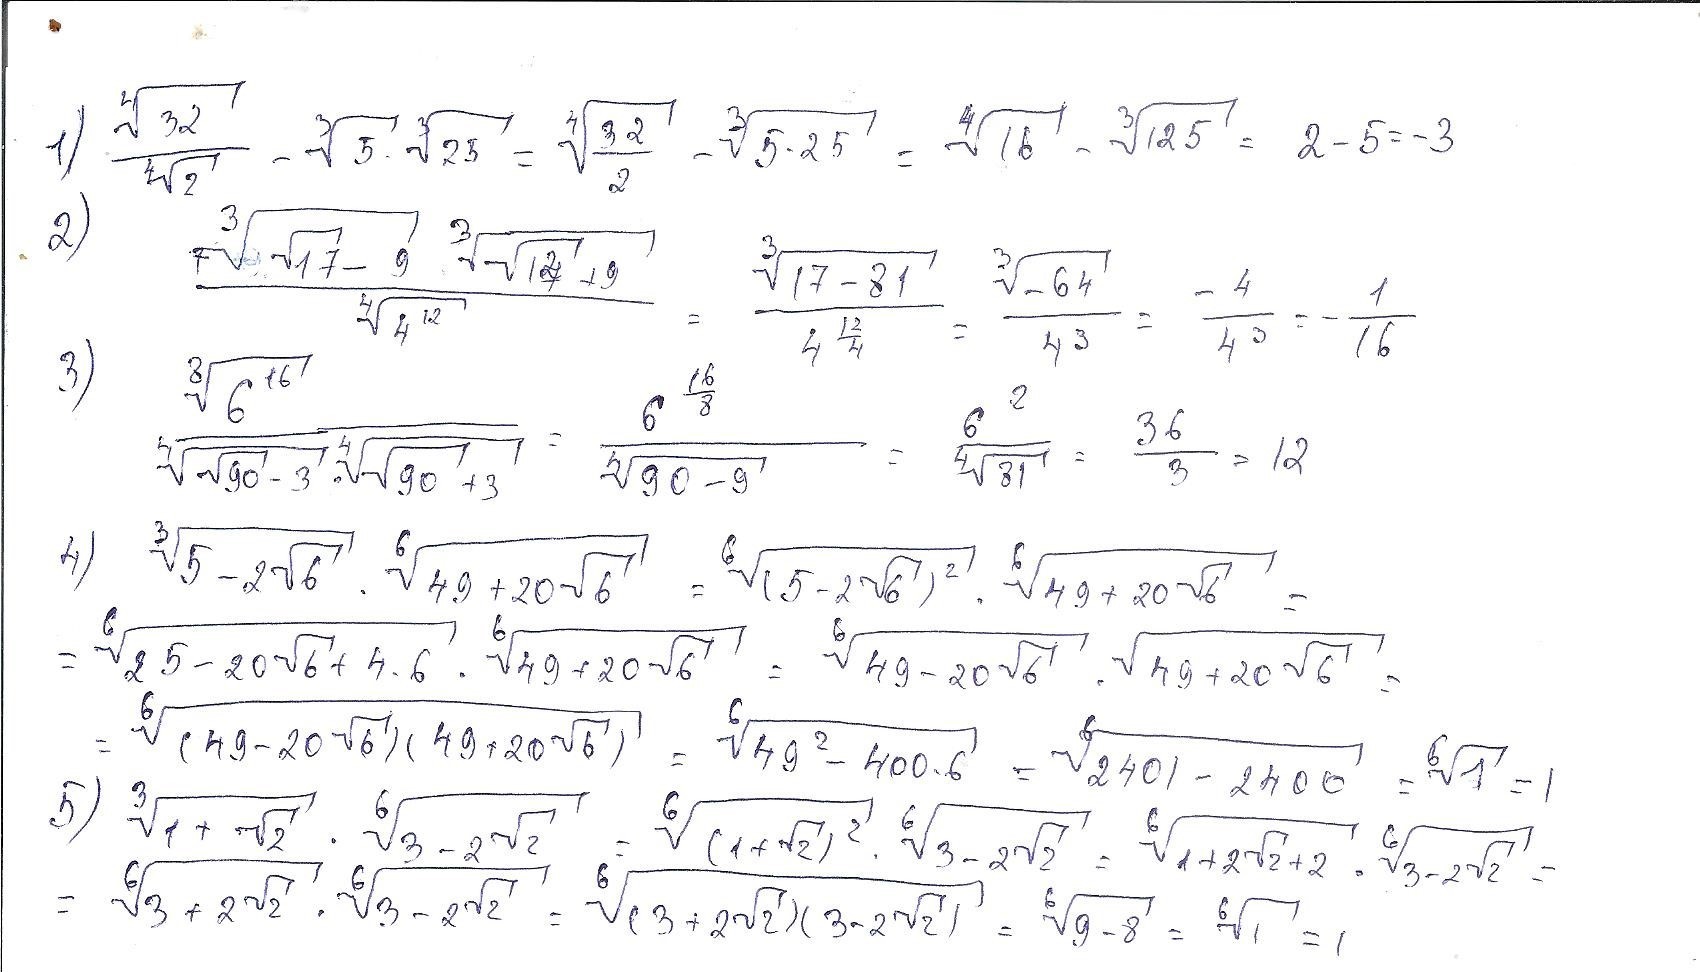 1) ⁴√32 / ⁴√2 - ³√5 · ³√25 = ⁴√(32/2) - ³√(5·25) = ⁴√16 - ³√125 = 2 - 5 = -3
2) ³√(√17 - 9) ³√(√17 + 9) / ⁴√(4^12) = ³√(17 - 81) / 4^(12/4) = ³√(-64) / 4^3 = -4 / 4^3 = -1/16
3) ⁸√(6^16) / (⁴√(√90 - 3) · ⁴√(√90 + 3)) = 6^(16/8) / ⁴√(90 - 9) = 6^2 / ⁴√81 = 36/3 = 12
4) ³√(5 - 2√6) · ⁶√(49 + 20√6) = ⁶√((5 - 2√6)^2) · ⁶√(49 + 20√6) =
= ⁶√(25 - 20√6 + 4·6) · ⁶√(49 + 20√6) = ⁶√(49 - 20√6) · √(49 + 20√6) =
= ⁶√((49 - 20√6)(49 + 20√6)) = ⁶√(49^2 - 400·6) = ⁶√(2401 - 2400) = ⁶√1 = 1
5) ³√(1 + √2) · ⁶√(3 - 2√2) = ⁶√((1 + √2)^2) · ⁶√(3 - 2√2) = ⁶√(1 + 2√2 + 2) · ⁶√(3 - 2√2) =
= ⁶√(3 + 2√2) · ⁶√(3 - 2√2) = ⁶√((3 + 2√2)(3 - 2√2)) = ⁶√(9 - 8) = ⁶√1 = 1